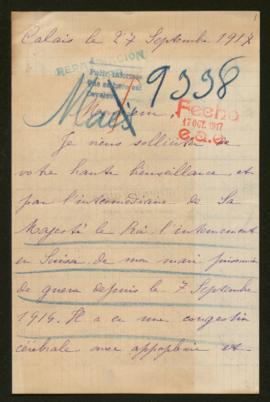 Calais le 27 Septembre 1917
REPATRIACION
9338
Fecho
17 OCT. 1917
Je viens solliciter de
votre haute bienveillance, et
par l'intermédiaire de Sa
Majesté le Roi l'internement
en Suisse de mon mari prisonnier
de guerre depuis le 7 Septembre
1914. Il a eu une congestion
cérébrale avec appoplexie et